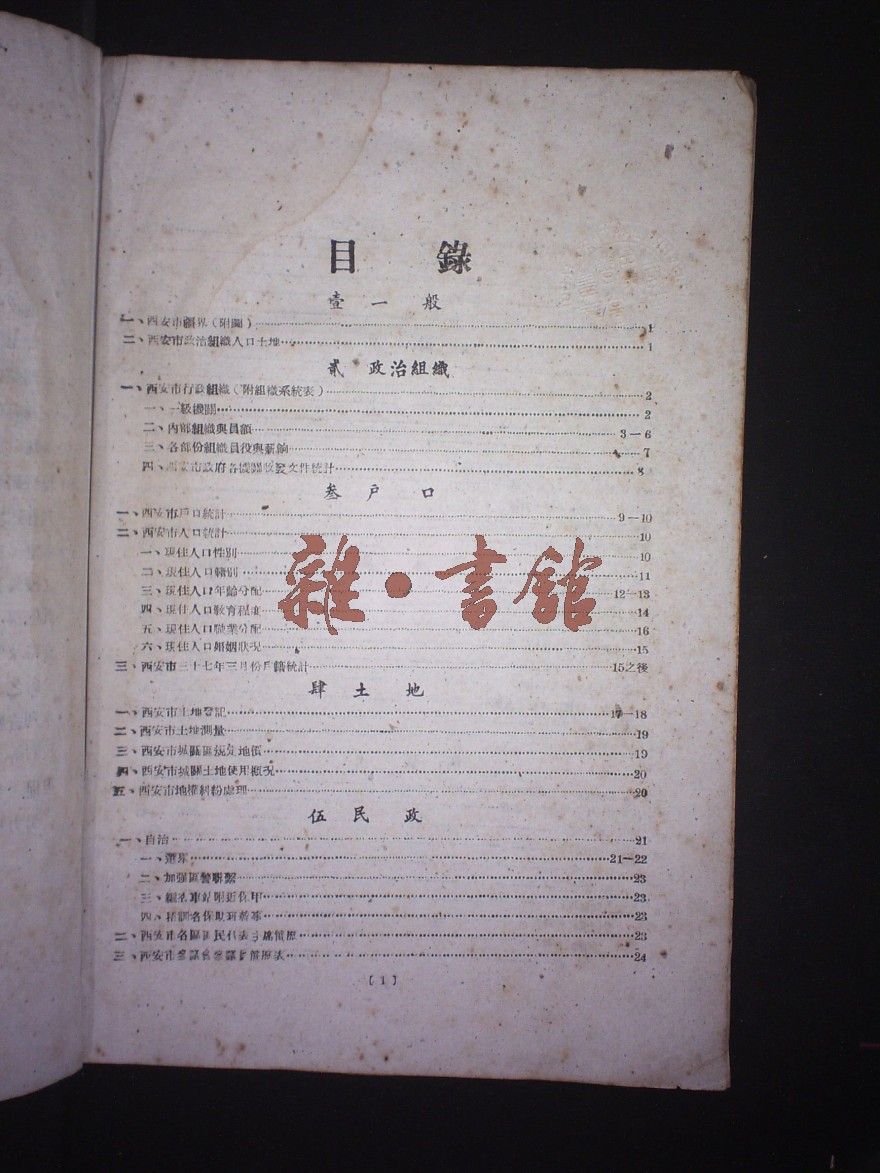 目 錄
壹 一 般
一、西安市疆界(附圖)……1
二、西安市政治組織人口土地……1
貳 政治組織
一、西安市行政組織(附組織系統表)……2
一、一級機關……2
二、內部組織與員額……3—6
三、各部份組織員役與薪餉……7
四、西安市政府各機關收發文件統計……8
叁 戶 口
一、西安市戶口統計……9—10
二、西安市人口統計……10
一、現住人口性別……10
二、現住人口籍別……11
三、現住人口年齡分配……12—13
四、現住人口教育程度……14
五、現住人口職業分配……16
六、現住人口婚姻狀況……15
三、西安市三十七年三月份戶籍統計……15之後
雜·書館
肆 土 地
一、西安市土地登記……17—18
二、西安市土地測量……19
三、西安市城關區規定地價……19
四、西安市城關土地使用概況……20
五、西安市地權糾紛處理……20
伍 民 政
一、自治……21
一、選舉……21—22
二、加強區警聯繫……23
三、車站附近保甲……23
四、各保……23
二、西安市各區區民代表主席簡歷……23
三、西安市參議會參議員簡歷表……24
[1]